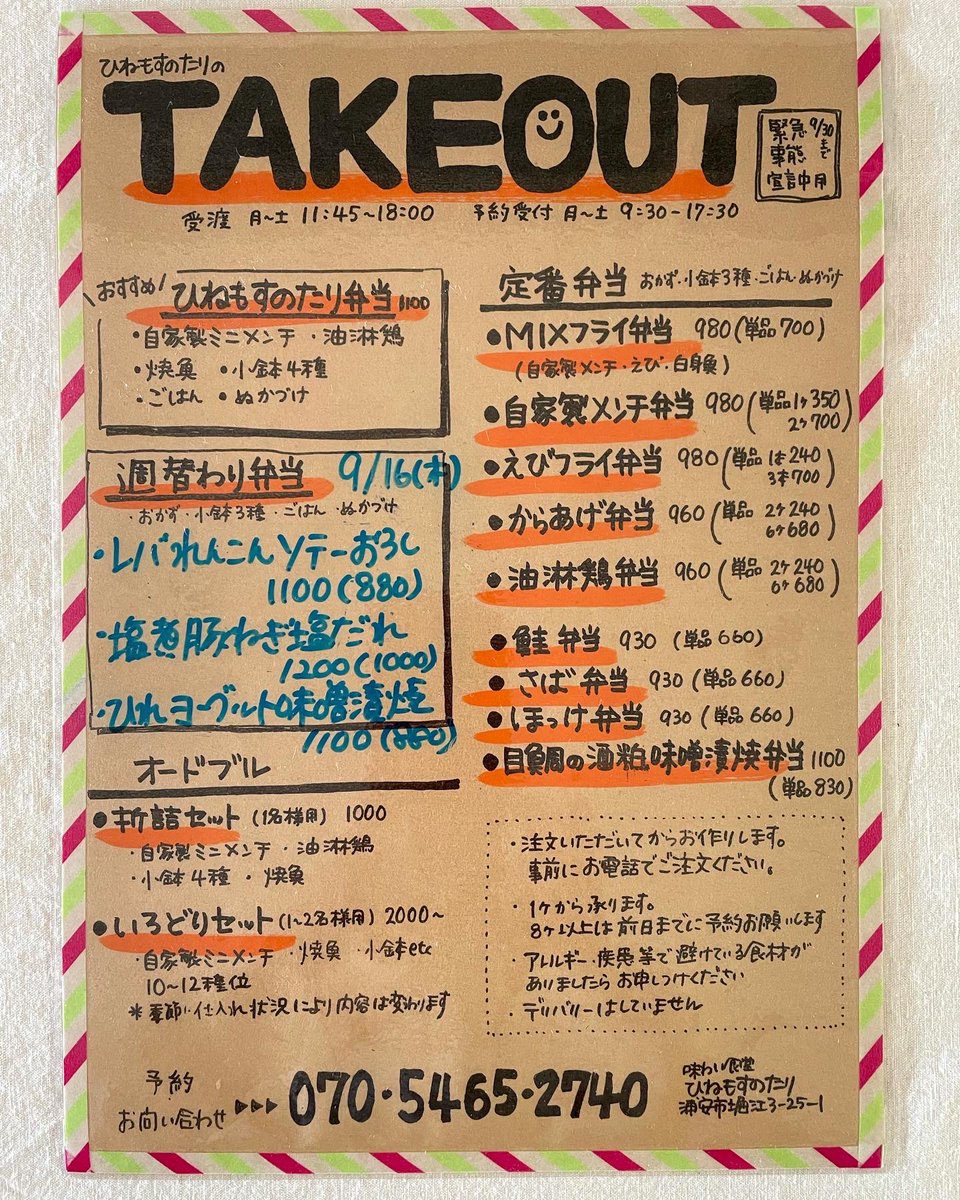 ひねもすのたりの
TAKEOUT
緊急事態宣言中用
9/30まで
受渡 月〜土 11:45〜18:00 予約受付 月〜土 9:30-17:30
おすすめ!
ひねもすのたり弁当 1100
・自家製ミニメンチ ・油淋鶏
・焼魚 ・小鉢4種
・ごはん ・ぬかづけ
週替わり弁当 9/16(木)
・おかず・小鉢3種・ごはん・ぬかづけ
・レバれんこんソテーおろし
1100(880)
・塩煮豚ねぎ塩だれ
1200(1000)
・ひれヨーグルト味噌漬焼
1100(880)
オードブル
●折詰セット(1名様用) 1000
・自家製ミニメンチ ・油淋鶏
・小鉢4種 ・焼魚
●いろどりセット(1〜2名様用) 2000〜
・自家製ミニメンチ ・焼魚 ・小鉢etc
10〜12種位
*季節・仕入れ状況により内容は変わります
定番弁当 おかず・小鉢3種・ごはん・ぬかづけ
●MIXフライ弁当 980(単品700)
(自家製メンチ・えび・白身魚)
●自家製メンチ弁当 980(単品1ヶ350
2ヶ700)
●えびフライ弁当 980(単品 1本240
3本700)
●からあげ弁当 960(単品 2ヶ240
6ヶ680)
●油淋鶏弁当 960(単品 2ヶ240
6ヶ680)
●鮭弁当 930(単品660)
●さば弁当 930(単品660)
●ほっけ弁当 930(単品660)
●目鯛の酒粕味噌漬焼弁当 1100
(単品830)
・注文いただいてからお作りします。
事前にお電話でご注文ください。
・1ケから承ります。
8ヶ以上は前日までに予約お願いします
・アレルギー・疾患等で避けている食材が
ありましたらお申しつけください
・デリバリーはしていません
予約
お問い合わせ ▶▶▶ 070・5465・2740
味わい食堂
ひねもすのたり
浦安市堀江3-25-1